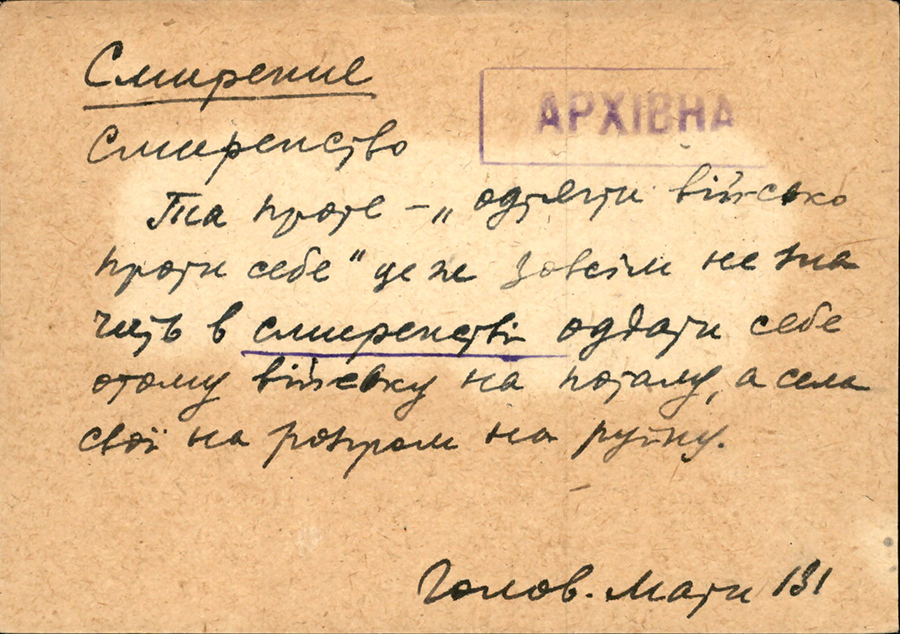 Смирение
АРХІВНА
Смиренство
Та проте – „одтягти військо
проти себе" це ж зовсім не зна
чить в смиренстві оддати себе
отому війську на поталу, а села
свої на розгром на руїну.
Голов. Мати 131